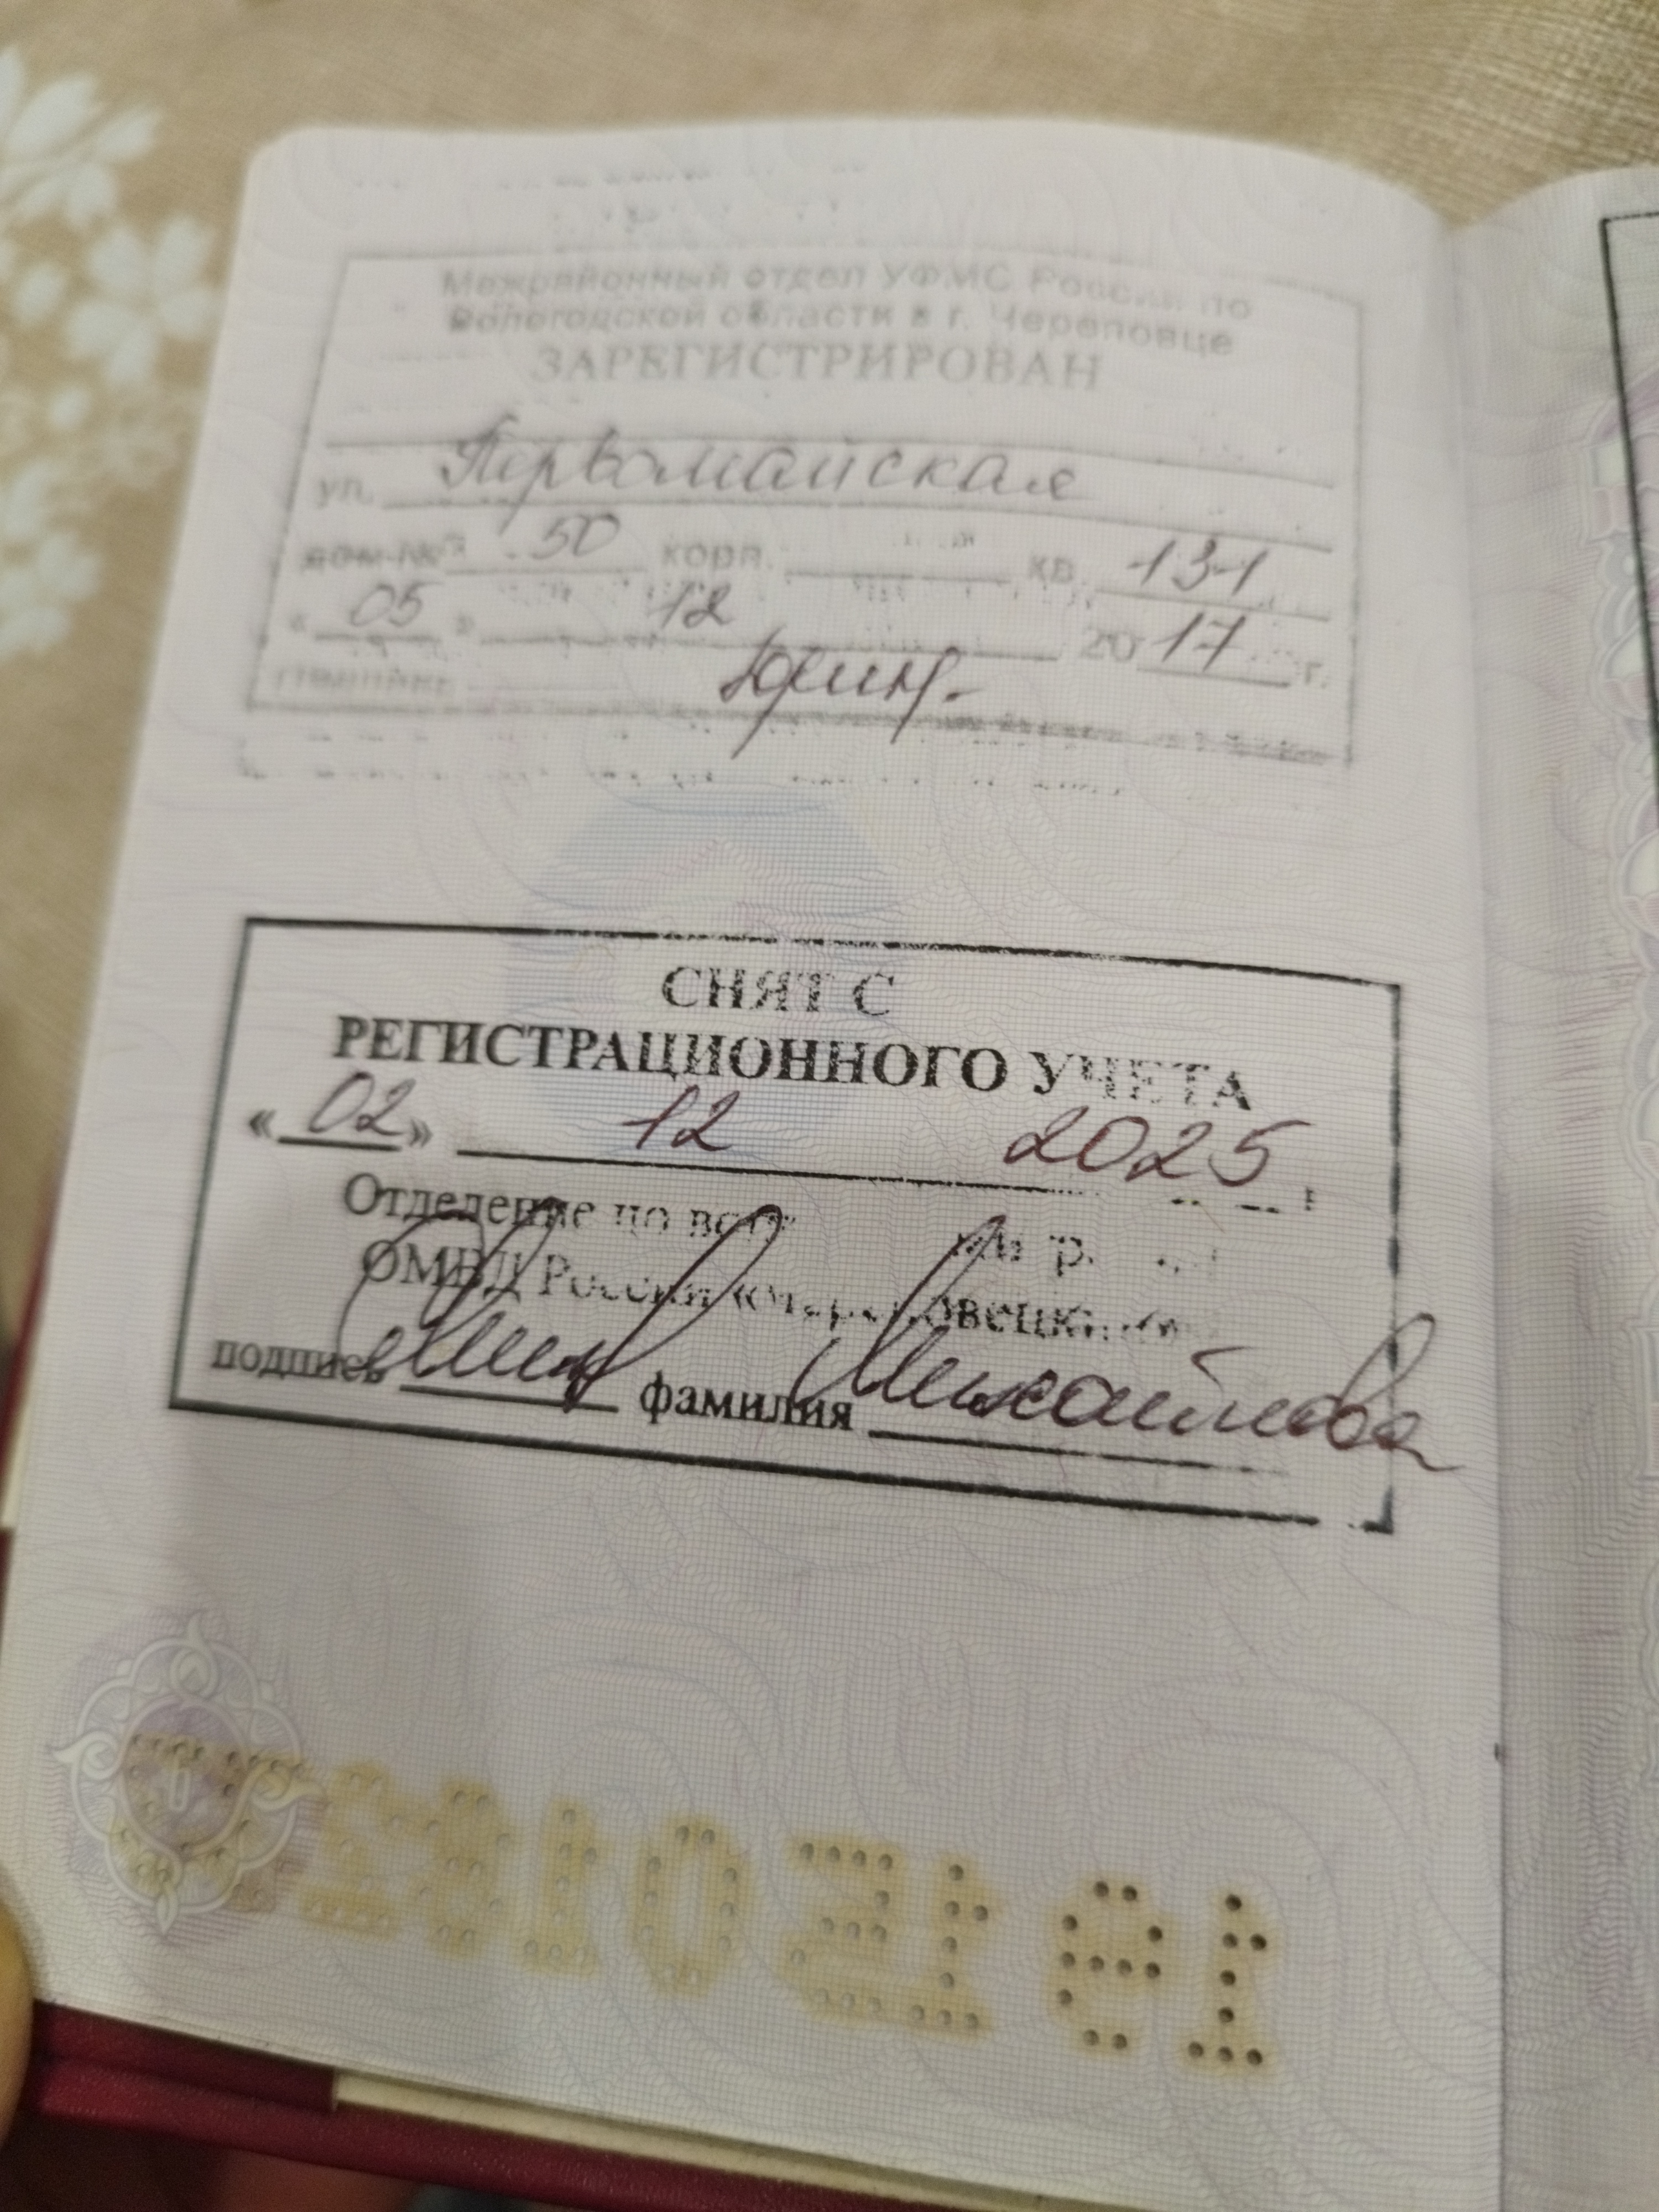 Межрайонный отдел УФМС России по
Вологодской области в г. Череповце
ЗАРЕГИСТРИРОВАН
ул. Первомайская
дом № 50 корп. кв. 131
« 05 » 12 2017 г.
Подпись
СНЯТ С
РЕГИСТРАЦИОННОГО УЧЕТА
« 02 » 12 2025
Отделение по
ОМВД России «Череповецкий»
подпись фамилия Михайлова
6